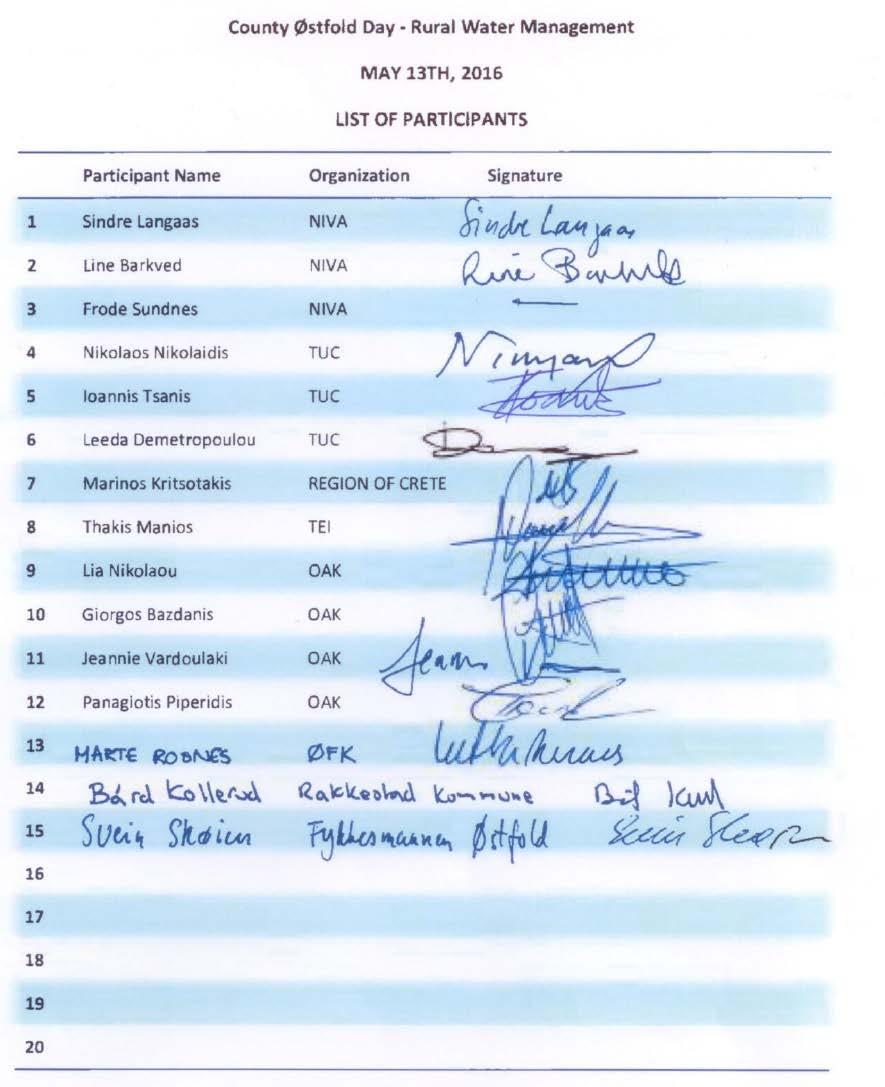 County Østfold Day - Rural Water Management
MAY 13TH, 2016
LIST OF PARTICIPANTS
Participant Name Organization Signature
1 Sindre Langaas NIVA Sindre Langaas
2 Line Barkved NIVA Line Barkved
3 Frode Sundnes NIVA
4 Nikolaos Nikolaidis TUC
5 Ioannis Tsanis TUC
6 Leeda Demetropoulou TUC
7 Marinos Kritsotakis REGION OF CRETE
8 Thakis Manios TEI
9 Lia Nikolaou OAK
10 Giorgos Bazdanis OAK
11 Jeannie Vardoulaki OAK
12 Panagiotis Piperidis OAK
13 MARTE ROSNES ØFK
14 Bård Kollerud Rakkestad Kommune
15 Svein Skøien Fylkesmannen Østfold
16
17
18
19
20